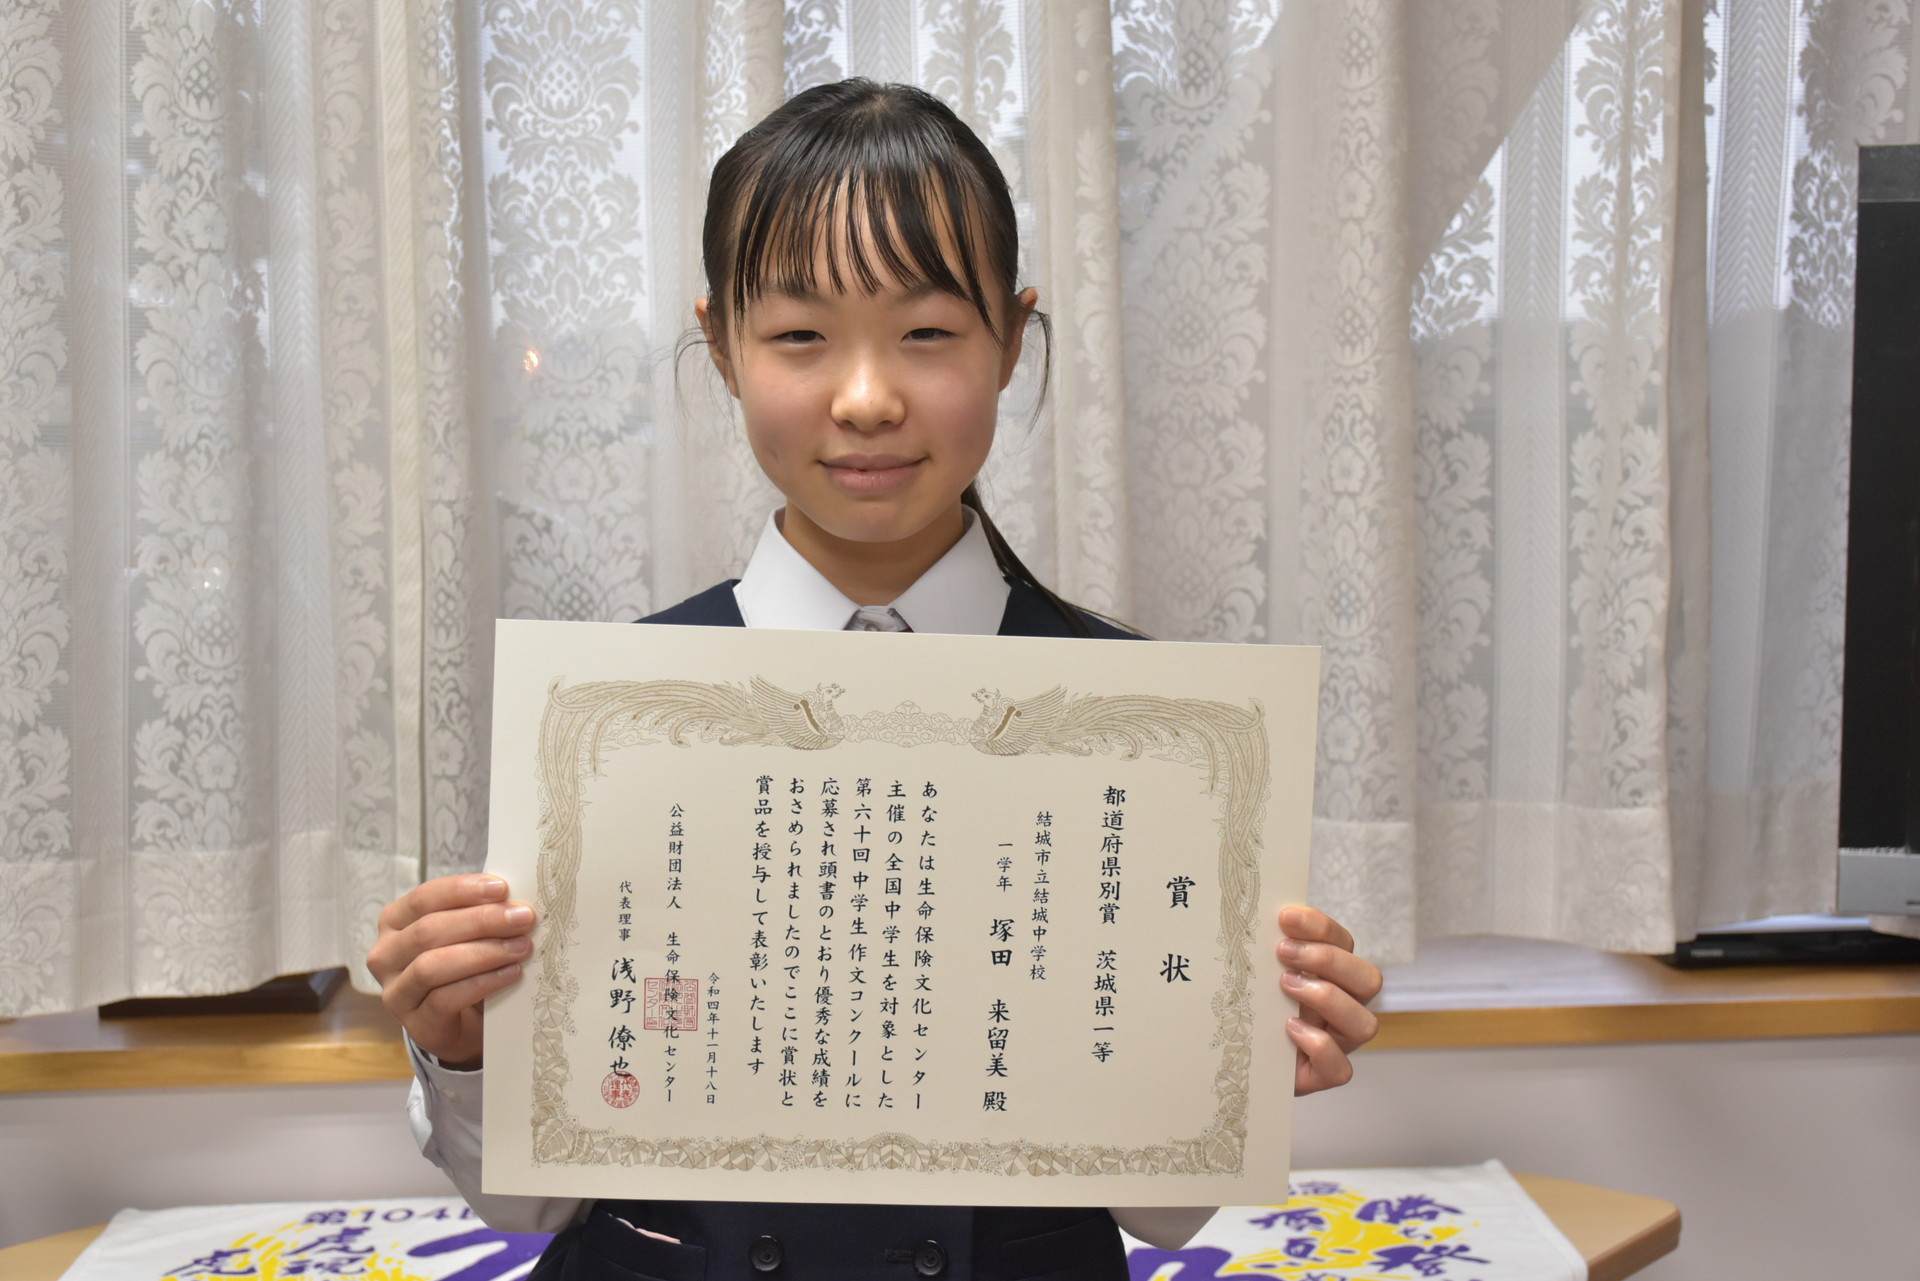 賞状
都道府県別賞 茨城県一等
結城市立結城中学校
一学年 塚田 来留美 殿
あなたは生命保険文化センター
主催の全国中学生を対象とした
第六十回中学生作文コンクールに
応募され頭書のとおり優秀な成績を
おさめられましたのでここに賞状と
賞品を授与して表彰いたします
令和四年十一月十八日
公益財団法人 生命保険文化センター
代表理事 浅野 僚也
代表
理事
第104回